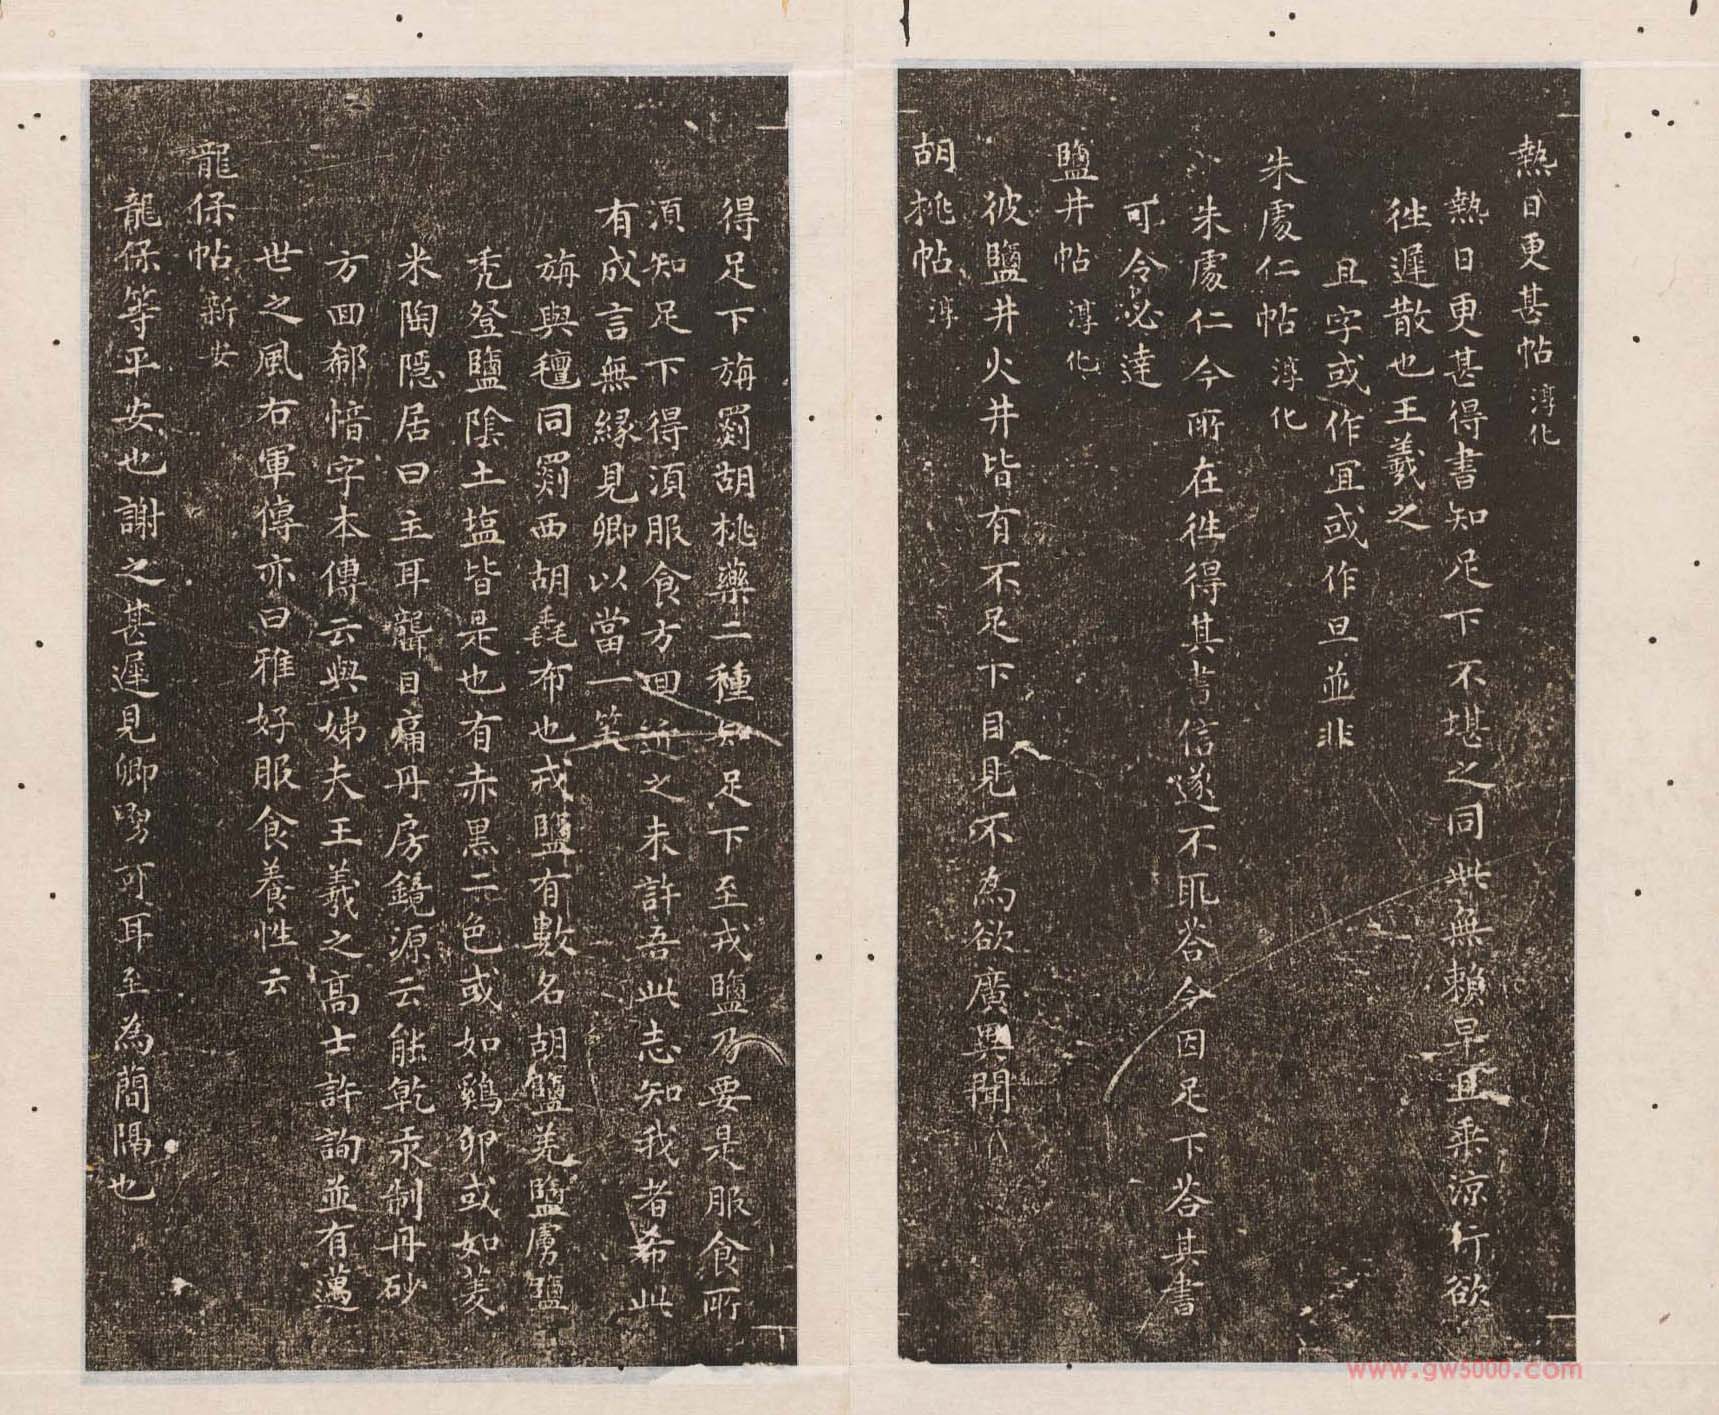 熱日更甚帖淳化
熱日更甚得書知足下不堪之同此無賴早且乘涼行欲
往遲散也王羲之
且字或作宜或作旦並非
朱處仁帖淳化
朱處仁今所在往得其書信遂不取答今因足下答其書
可令必達
鹽井帖淳化
彼鹽井火井皆有不足下目見不為欲廣異聞
胡桃帖淳
得足下旃罽胡桃藥二種知足下至戎鹽乃要是服食所
須知足下得須服食方回近之未許吾此志知我者希此
有成言無緣見卿以當一笑
旃與氊同罽西胡毳布也戎鹽有數名胡鹽羌鹽虜鹽
禿登鹽陰土塩皆是也有赤黑二色或如鷄卵或如菱
米陶隱居曰主耳聾目痛丹房鏡源云能乾汞制丹砂
方回郗愔字本傳云與姊夫王羲之高士許詢並有邁
世之風右軍傳亦曰雅好服食養性云
龍保帖新安
龍保等平安也謝之甚遲見卿舅可耳至為簡隔也
www.gw5000.com